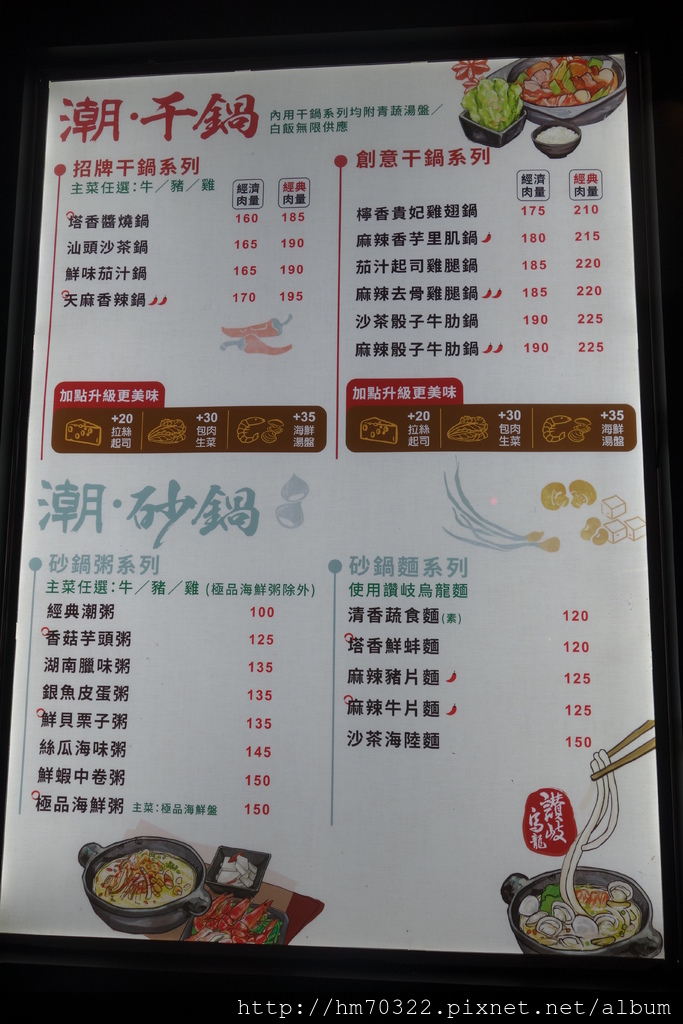 潮·干鍋
內用干鍋系列均附青蔬湯盤／
白飯無限供應
招牌干鍋系列
主菜任選：牛／豬／雞
經濟肉量 經典肉量
塔香醬燒鍋 160 185
汕頭沙茶鍋 165 190
鮮味茄汁鍋 165 190
天麻香辣鍋 170 195
加點升級更美味
+20 拉絲起司
+30 包肉生菜
+35 海鮮湯盤
創意干鍋系列
經濟肉量 經典肉量
檸香貴妃雞翅鍋 175 210
麻辣香芋里肌鍋 180 215
茄汁起司雞腿鍋 185 220
麻辣去骨雞腿鍋 185 220
沙茶骰子牛肋鍋 190 225
麻辣骰子牛肋鍋 190 225
加點升級更美味
+20 拉絲起司
+30 包肉生菜
+35 海鮮湯盤
潮·砂鍋
砂鍋粥系列
主菜任選：牛／豬／雞 (極品海鮮粥除外)
經典潮粥 100
香菇芋頭粥 125
湖南臘味粥 135
銀魚皮蛋粥 135
鮮貝栗子粥 135
絲瓜海味粥 145
鮮蝦中卷粥 150
極品海鮮粥 主菜：極品海鮮盤 150
砂鍋麵系列
使用讚岐烏龍麵
清香蔬食麵(素) 120
塔香鮮蚌麵 120
麻辣豬片麵 125
麻辣牛片麵 125
沙茶海陸麵 150
讚岐
烏龍
http://hm70322.pixnet.net/album